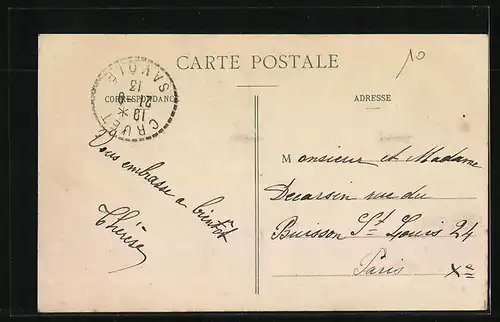 CARTE POSTALE
10
CORRESPONDANCE
ADRESSE
CRUET
SAVOIE
19
21 - 8
13
Vous embrasse a bientôt
Thérèse
Monsieur et Madame
Decarsin rue du
Buisson St Louis 24
Paris Xe